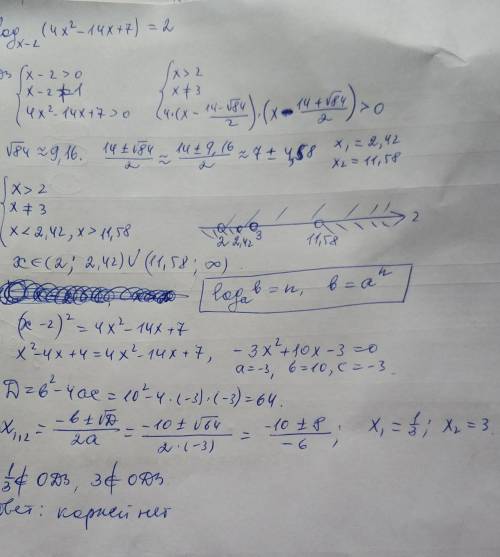 log_{x-2} (4x² - 14x + 7) = 2
{ x - 2 > 0 { x > 2
x - 2 ≠ 1 x ≠ 3
4x² - 14x + 7 > 0 4·(x - (14-√84)/2)·(x - (14+√84)/2) > 0
√84 ≈ 9,16. (14±√84)/2 ≈ (14±9,16)/2 ≈ 7 ± 4,58 x₁ = 2,42
x₂ = 11,58
{ x > 2
x ≠ 3
x < 2,42, x > 11,58 2 2,42 3 11,58 2
x ∈ (2; 2,42) ∪ (11,58; ∞)
log_a b = n, b = aⁿ
(x - 2)² = 4x² - 14x + 7
x² - 4x + 4 = 4x² - 14x + 7, -3x² + 10x - 3 = 0
a = -3, b = 10, c = -3.
D = b² - 4ac = 10² - 4·(-3)·(-3) = 64.
x₁,₂ = (-b ± √D)/2a = (-10 ± √64)/(2·(-3)) = (-10 ± 8)/(-6); x₁ = 1/3; x₂ = 3.
1/3 ∉ ОДЗ, 3 ∉ ОДЗ
вет: корней нет